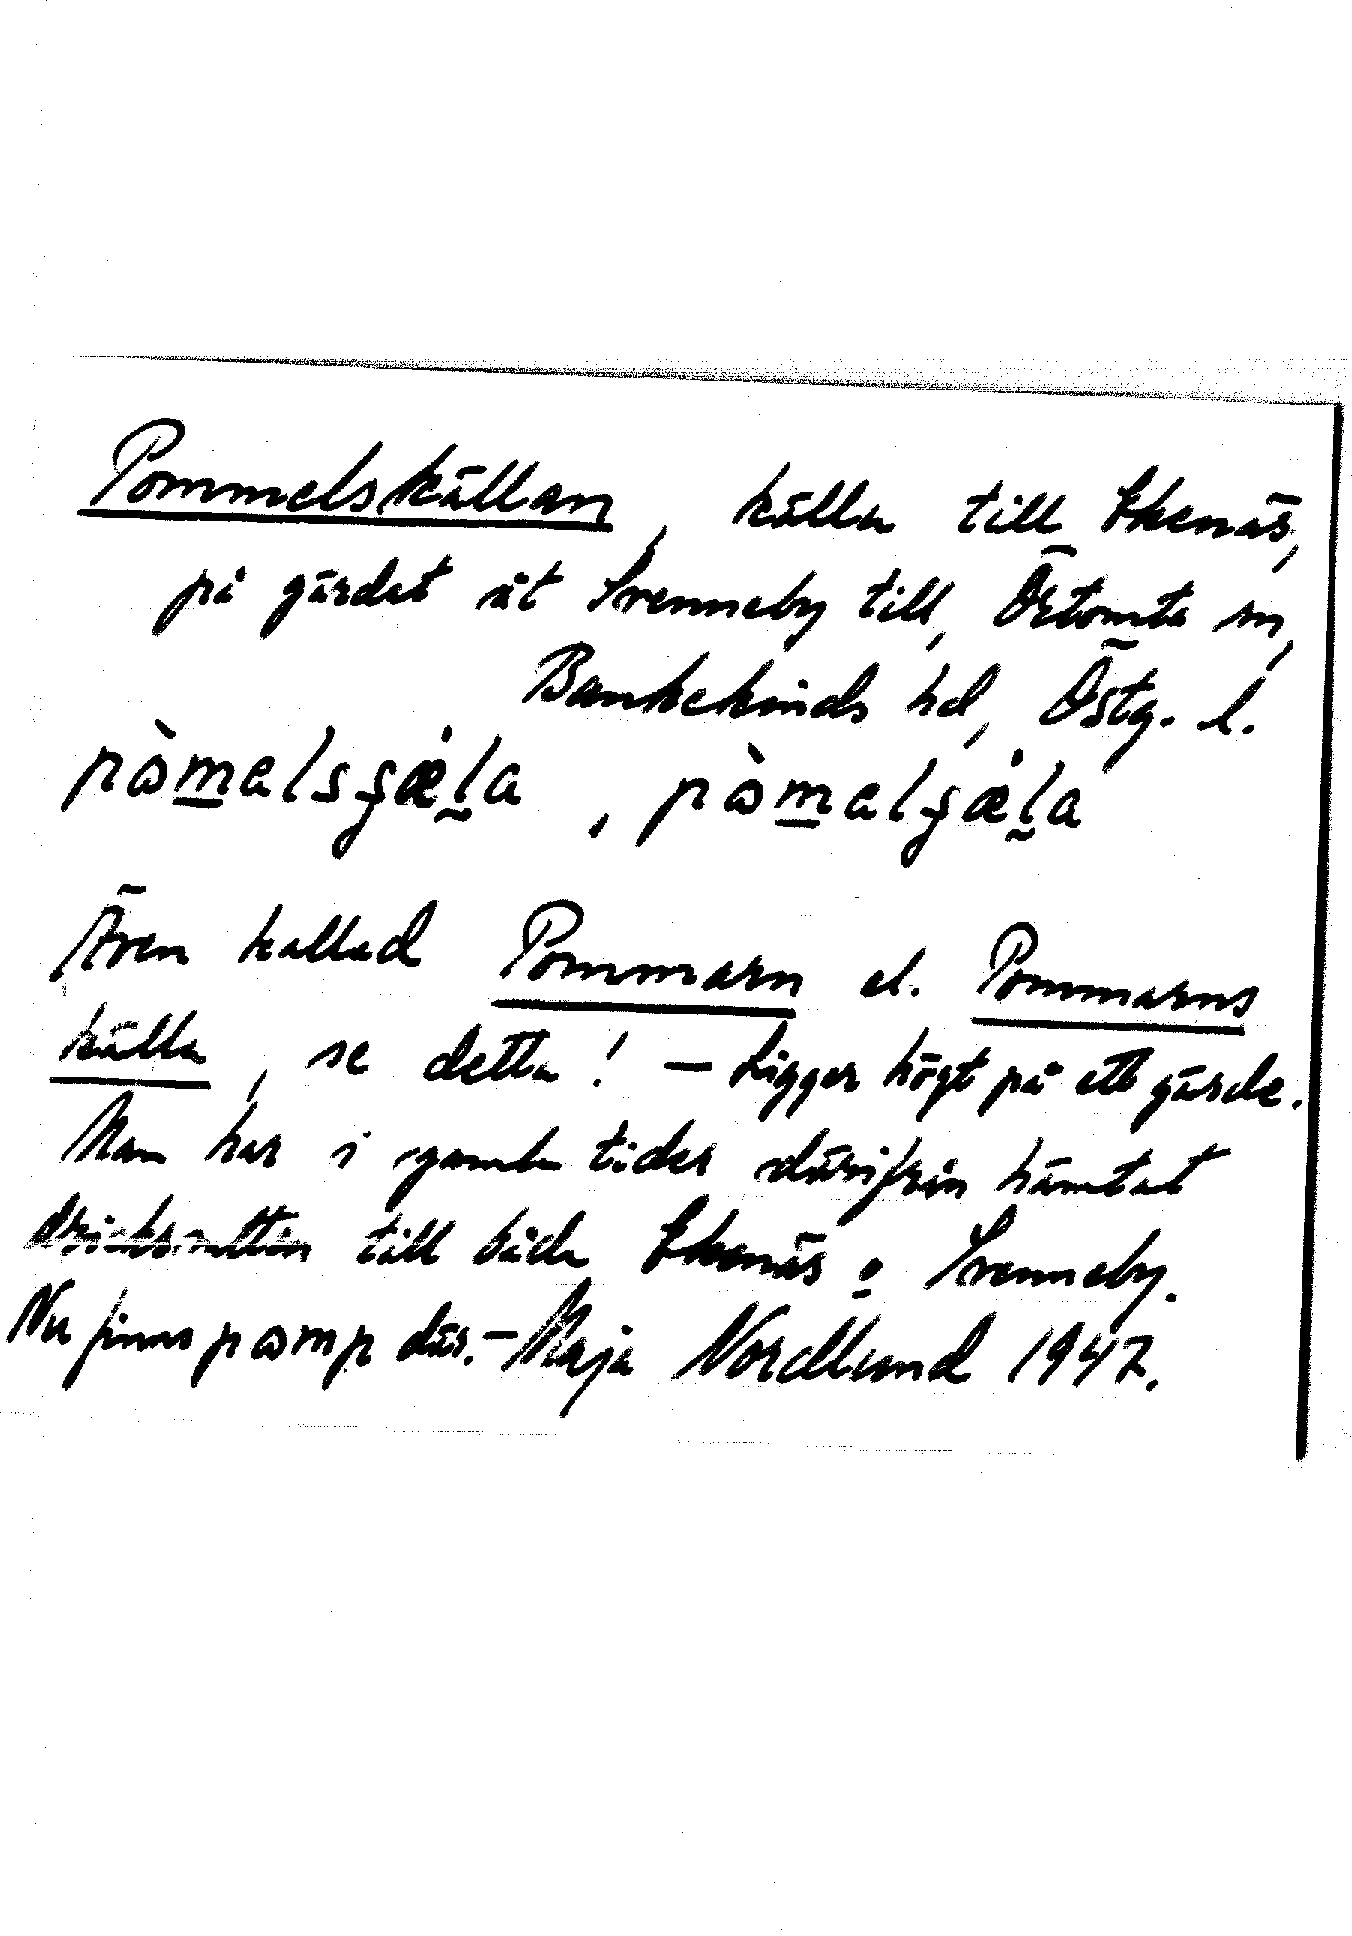 Pommelskällan, källa till Ekenäs,
på gärdet åt Svenneby till, Örtomta sn,
Bankekinds hd, Östg. l.
pòmalsʂæ̇la, pòmalʂæ̇la
Även kallad Pommarn el. Pommarns
källa, se detta! – Ligger högt på ett gärde.
Man har i gamla tider därifrån hämtat
dricksvatten till både Ekenäs o Svenneby.
Nu finns pomp där. – Maja Nordlund 1947.